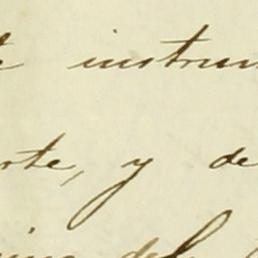 instrum
rte, y de
del